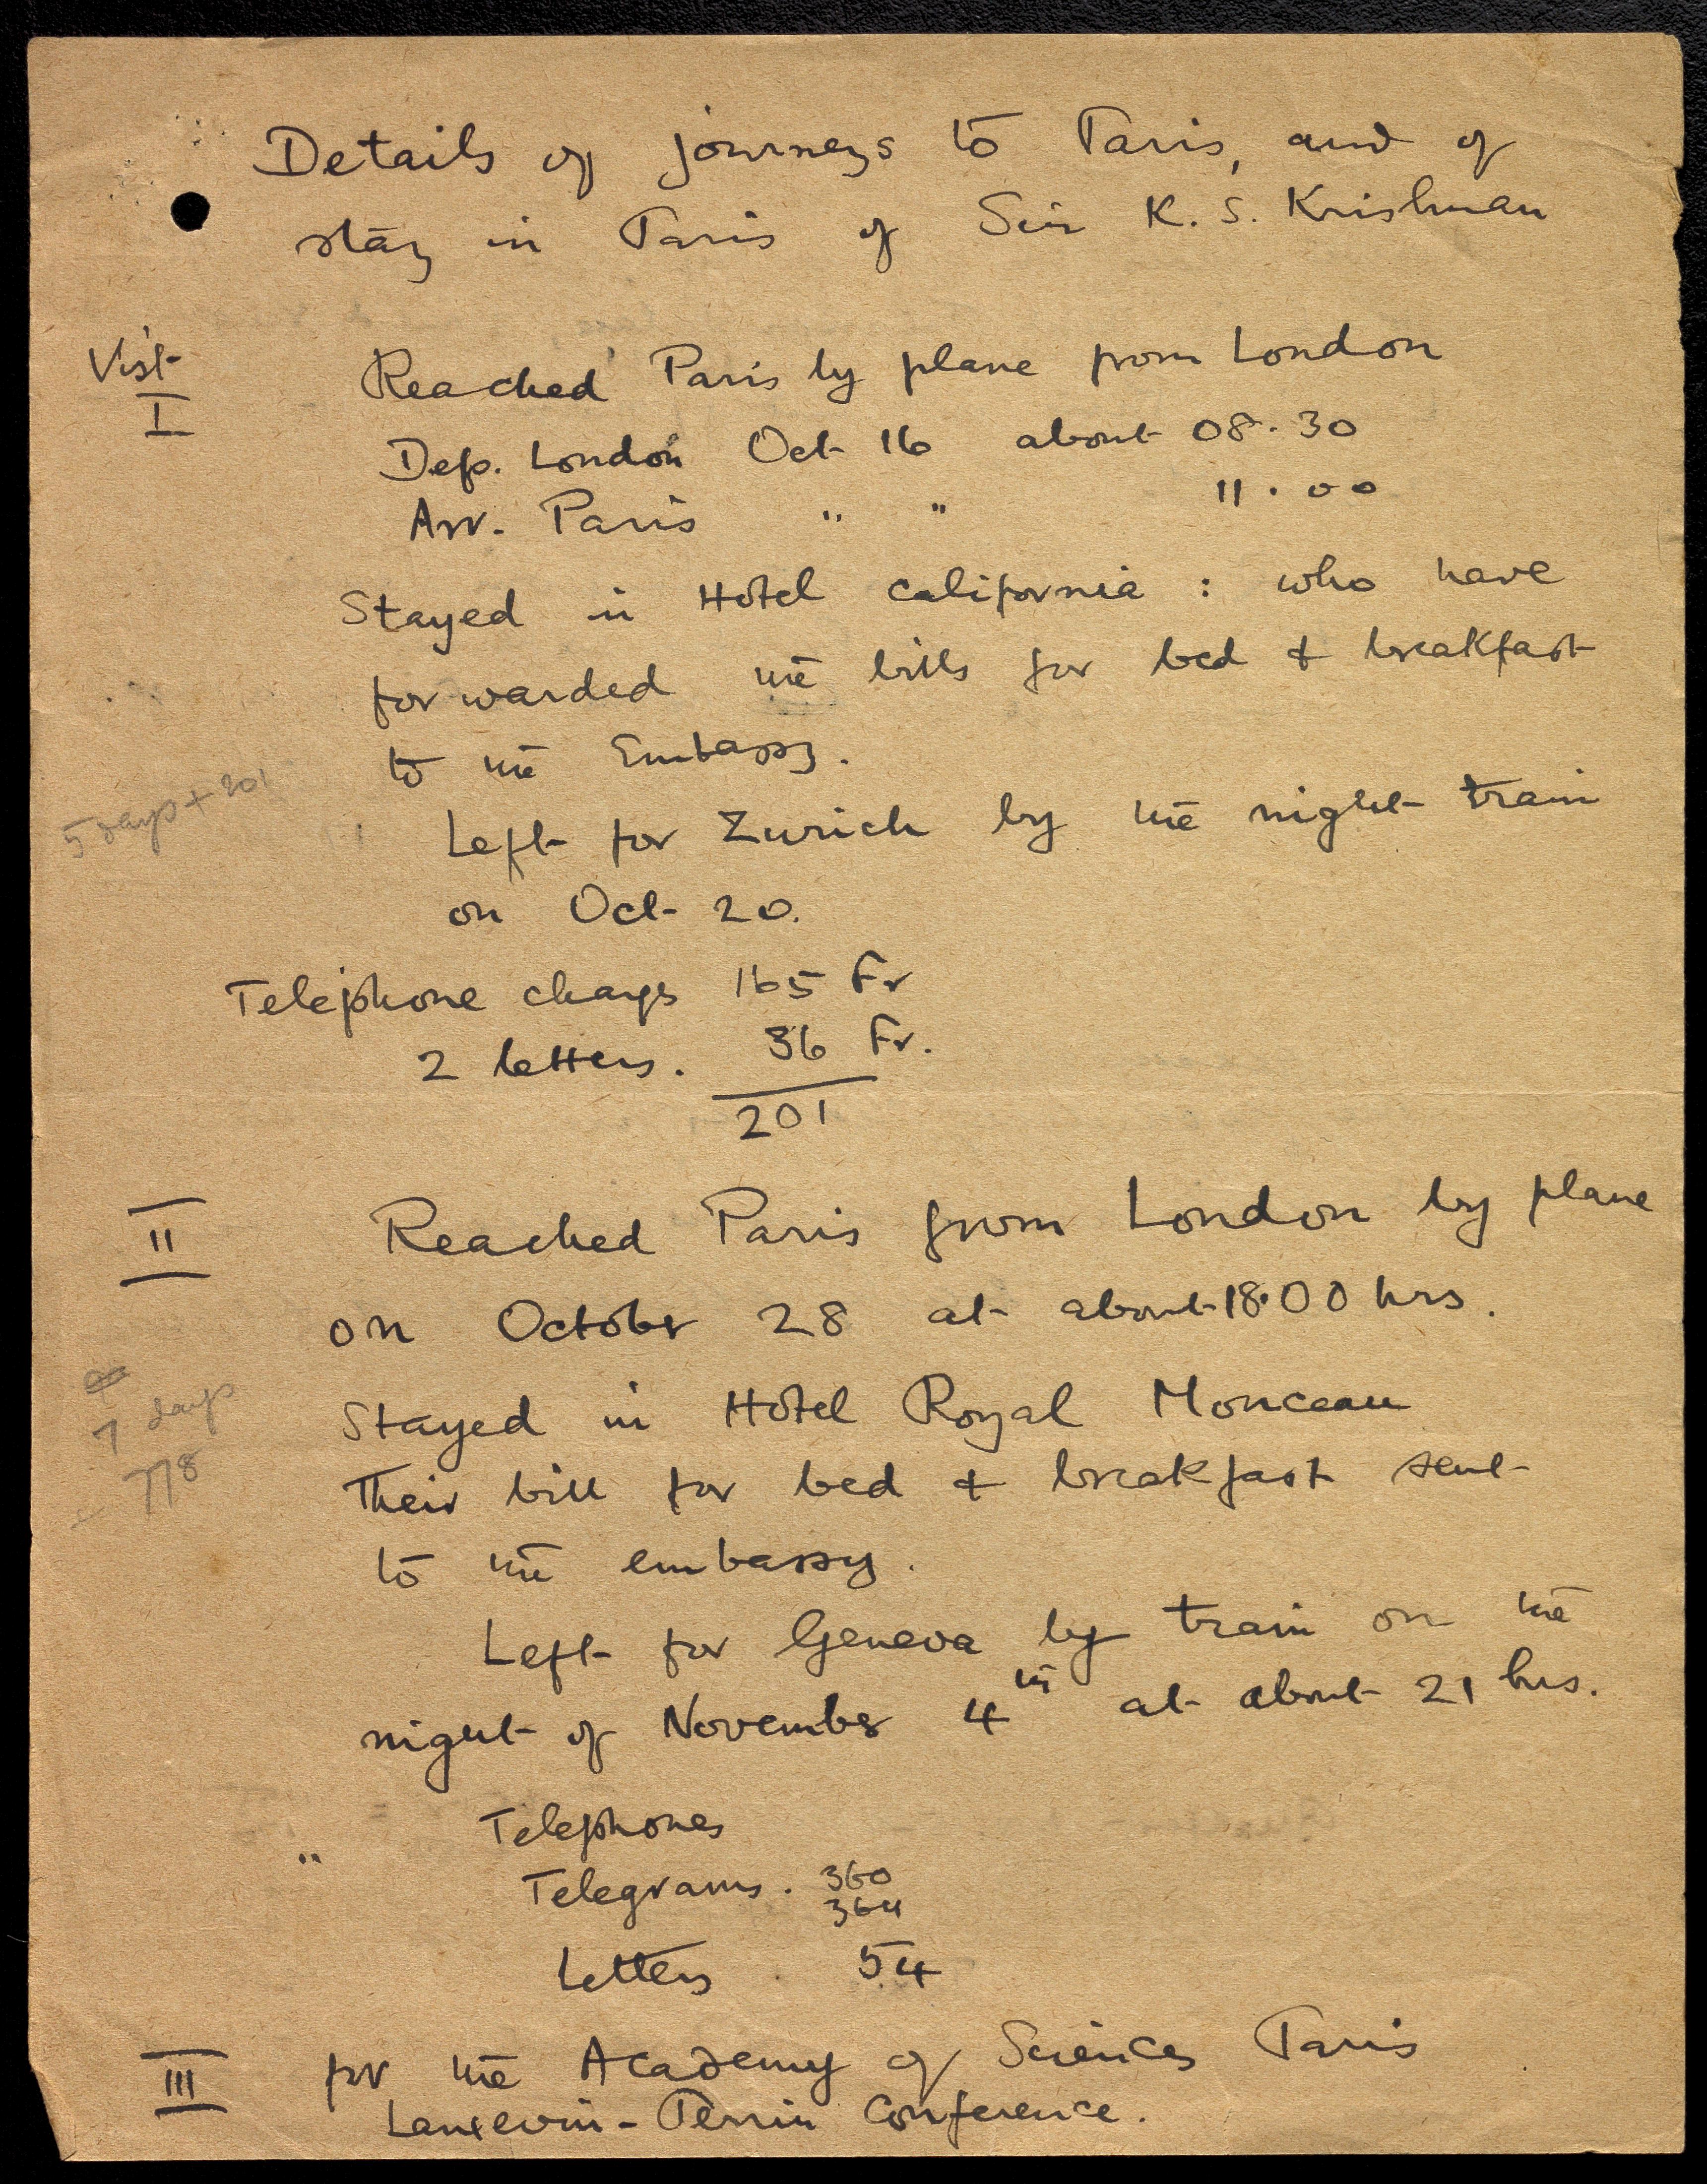 Details of journeys to Paris, and of
stay in Paris of Sir K. S. Krishnan
Visit
I
Reached Paris by plane from London
Dep. London Oct 16 about 08.30
Arr. Paris " " 11.00
Stayed in Hotel California : who have
forwarded the bills for bed & breakfast
to the Embassy.
5 days + 201
Left for Zurich by the night train
on Oct 20.
Telephone charges 165 Fr
2 letters. 36 Fr.
201
II
Reached Paris from London by plane
on October 28 at about 18.00 hrs.
Stayed in Hotel Royal Monceau
7 days
778
Their bill for bed & breakfast sent
to the embassy.
Left for Geneva by train on the
night of November 4th at about 21 hrs.
Telephones
" Telegrams. 360
364
Letters 54
III
for the Academy of Sciences Paris
Langevin-Perrin Conference.